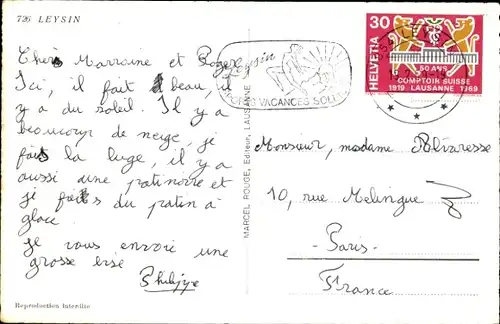 726 LEYSIN
Chers Marraine et Roger
Ici, il fait beau il
y a du soleil. Il y a
beaucoup de neige, je
fais la luge, il y a
aussi une patinoire et
je fais du patin à
glace.
je vous envoie une
grosse bise
Philippe
Reproduction interdite
MARCEL ROUGE, Editeur, LAUSANNE
Leysin
SPORTS VACANCES SOLEIL
LEYSIN
30
HELVETIA
50 ANS
COMPTOIR SUISSE
1919 LAUSANNE 1969
Monsieur, madame
10, rue Melingue
Paris
France